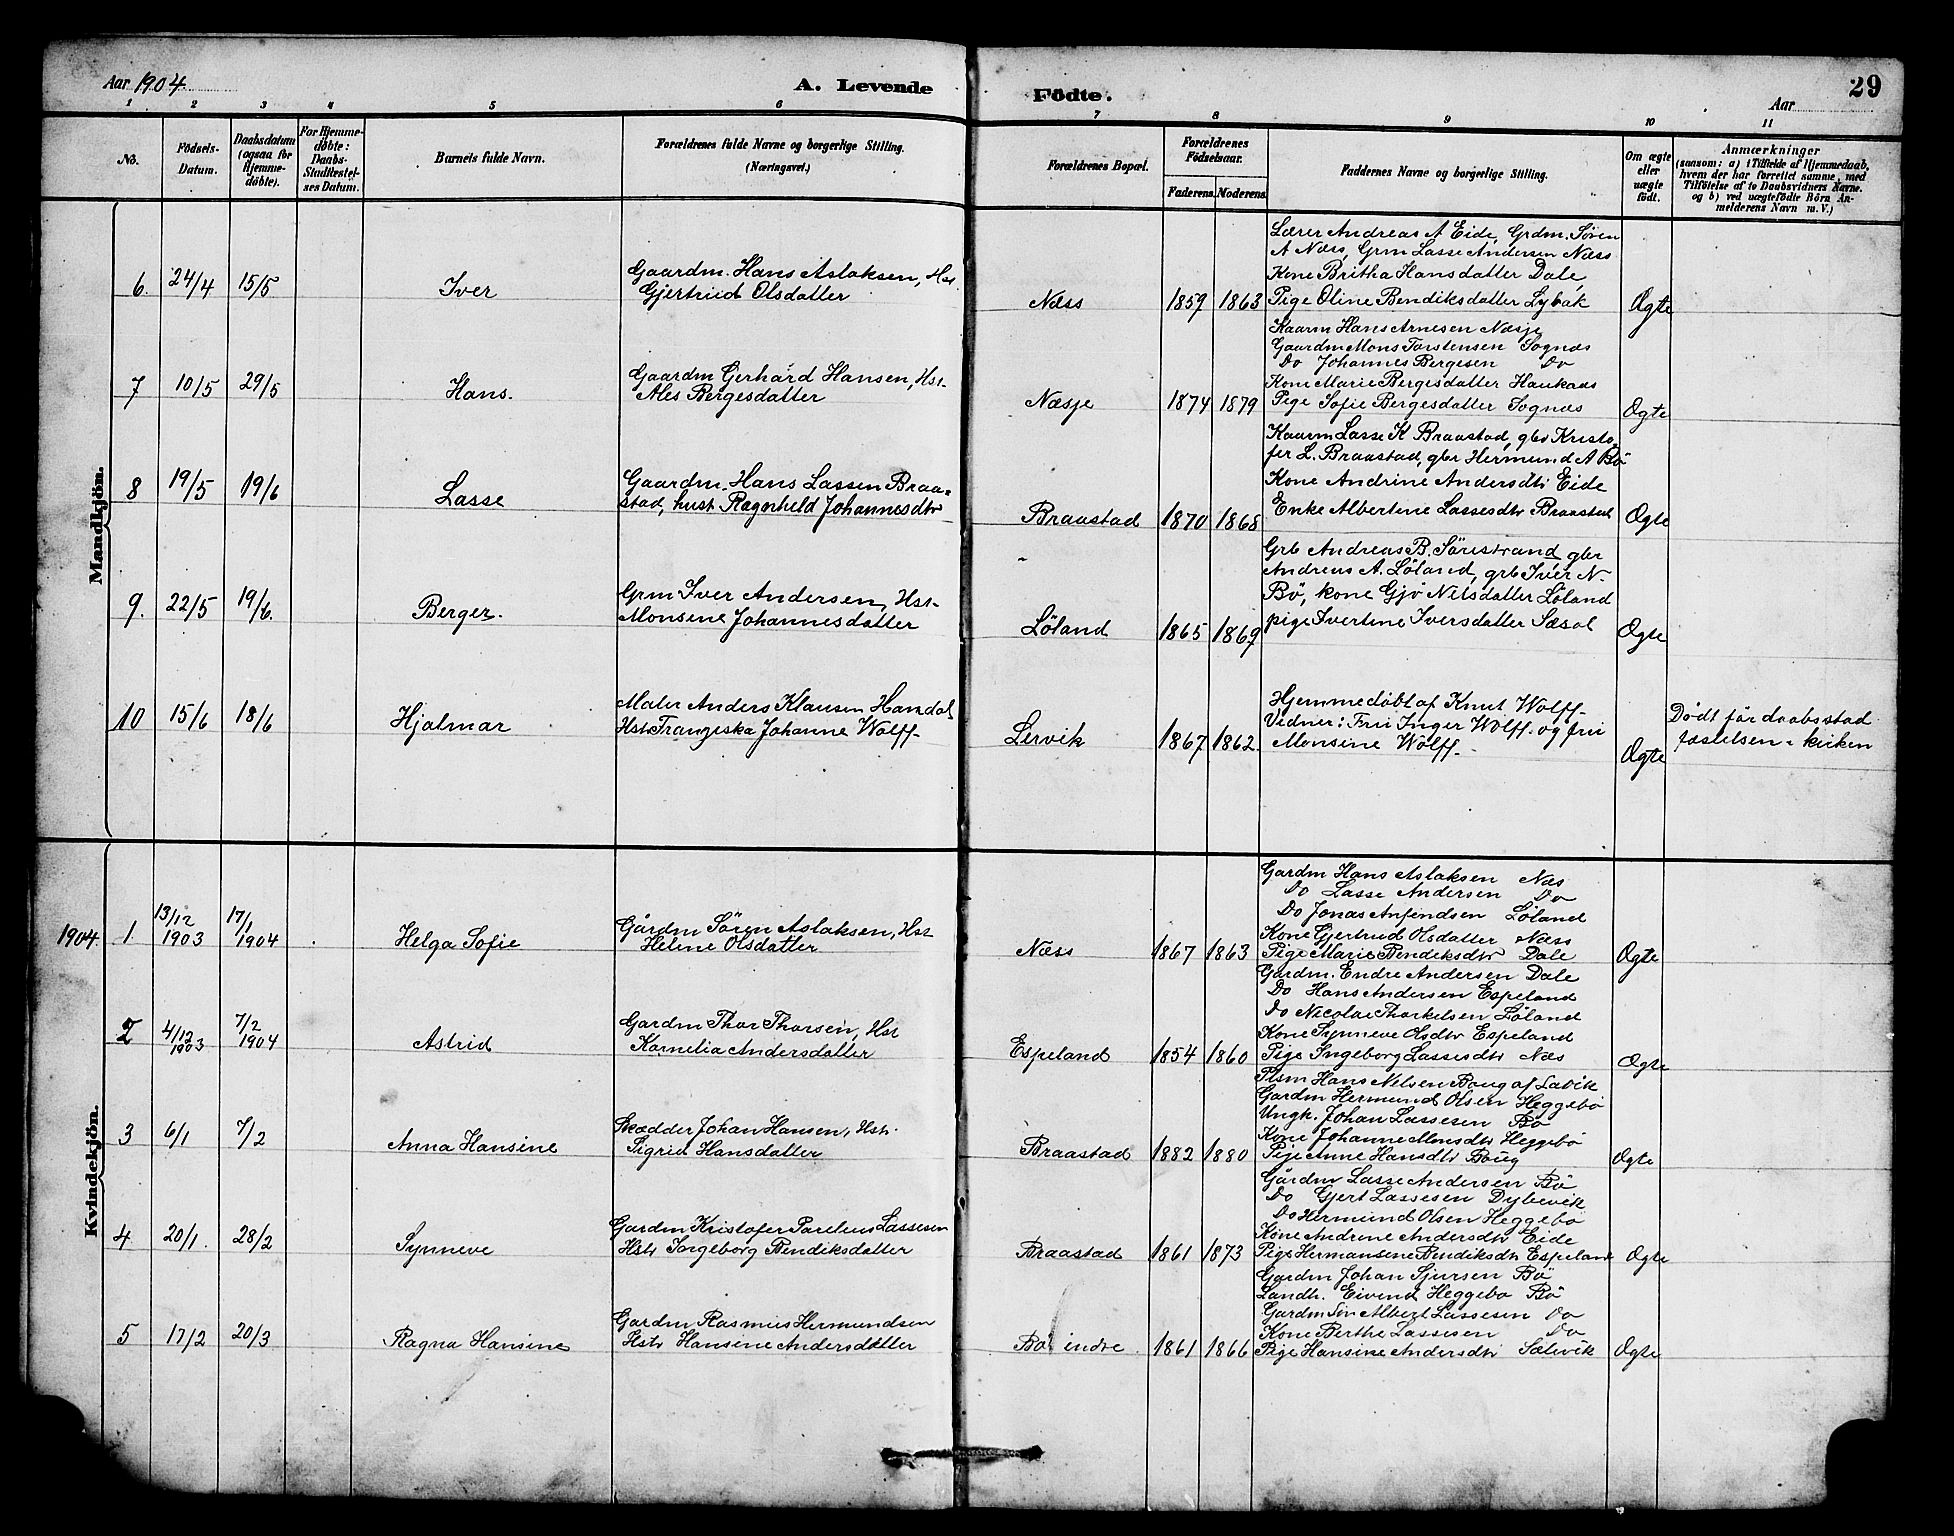 Aar 1904.
A. Levende
Födte.
29
Aar
1 2 3 4 5 6 7 8 9 10 11
No.
Födsels-
Datum.
Daabsdatum
(ogsaa for
Hjemme-
döbte).
For Hjemme-
döbte:
Daabs-
Stadfæstel-
ses Datum.
Barnets fulde Navn.
Forældrenes fulde Navne og borgerlige Stilling.
(Næringsvei.)
Forældrenes Bopæl.
Forældrenes
Födselsaar.
Faderens. Moderens.
Faddernes Navne og borgerlige Stilling.
Om ægte
eller
uægte
födt.
Anmærkninger
(saasom: a) i Tilfælde af Hjemmedaab,
hvem der har forrettet samme, med
Tilföielse af to Daabsvidners Navne.
og b) ved uægtefödte Börn An-
melderens Navn m. V.)
Mandkjön.
6. 24/4 15/5 Iver
Gaardm. Hans Aslaksen, Hst.
Gjertrud Olsdatter
Næss 1859 1863
Lærer Andreas A Eide, Grdm. Søren
A Næss, Grm Lasse Andersen Næss
Kone Britha Hansdatter Dale,
Pige Oline Bendiksdatter Lybak
Ægte
7 10/5 29/5 Hans.
Gaardm Gerhard Hansen, Hst-
Ales Bergesdatter
Næsje 1874 1879
Kaarm Hans Arnesen Næsje
Gaardm Mons Torstensen Sognæs
Do Johannes Bergesen Do
Kone Marie Bergesdatter Haukaas
Pige Sofie Bergesdatter Sognæs
Ægte
8 19/5 19/6 Lasse
Gaardm. Hans Lassen Braa-
stad, hust. Ragnhild Johannesdtr
Braastad 1870 1868
Kaarm Lasse K Braastad, gbr Kristo-
fer L. Braastad, gbr Hermund A Bö
Kone Andrine Andersdtr Eide
Enke Albertine Lassesdtr Braastad
Ægte
9. 22/5 19/6. Berger.
Grm Iver Andersen, Hst-
Monsine Johannesdatter
Löland 1865 1869
Grb Andreas B. Sörestrand gbr
Andreas A. Löland, grb Iver N.
Bö, kone Gjö Nilsdatter Löland
pige Ivertine Iversdatter Sæsol
Ægte
10 15/6 18/6 Hjalmar
Maler Anders Klausen Hamdal
Hst. Franziska Johanne Wolff-
Lervik 1867 1862.
Hjemmedøbt af Knut Wolff-
Vidner: Fru Inger Wolff. og fru
Monsine Wolff-
Ægte
Dödt før daabsstad
fæstelsen i kirken
Kvindekjön.
1904. 1 13/12 1903 17/1 1904 Helga Sofie
Gårdm Sören Aslaksen, Hst
Helene Olsdatter
Næss 1867 1863
Gardm Hans Aslaksen Næs
Do Lasse Andersen Do
Do Jonas Anfindsen Löland
Kone Gjertrud Olsdatter Næss
Pige Marie Bendiksdtr Dale
Ægte
2 4/12 1903 7/2 1904 Astrid
Gardm Thor Thorsen, Hst
Kornelia Andersdatter
Espeland 1854 1860
Gardm. Endre Andersen Dale
Do Hans Andersen Espeland
Do Nicolai Thorkelsen Löland
Kone Synneve Olsdtr Espeland
Pige Ingeborg Lassesdtr Næs
Ægte
3 6/1 7/2 Anna Hansine
Skædder Johan Hansen, Hst.
Sigrid Hansdatter
Braastad 1882 1880
Plsm Hans Nilsen Boug af Lavik
Gardm Hermund Olsen Heggebö
Ungk. Johan Lassesen Bö
Kone Johanne Monsdtr Heggebö
Pige Anne Hansdtr Boug
Ægte
4 20/1. 28/2 Synneve
Gardm Kristofer Parelius Lassesen
Hstr Ingeborg Bendiksdatter
Braastad 1861 1873
Gårdm Lasse Andersen Bö
Do Gjert Lassesen Dybevik
Do Hermund Olsen Heggebö
Kone Andrine Andersdtr Eide
Pige Hermansine Bendiksdtr Espeland
Ægte
5 17/2 20/3 Ragna Hansine
Gardm Rasmus Hermundsen
Hstr Hansine Andersdatter
Bö indre 1861 1866
Gardm Johan Sjursen Bö
Landh. Eivind Heggebø Bö
Gardm Søn Albert Lassesen Do
Kone Berthe Lassesen Do
Pige Hansine Andersdtr Sætevik
Ægte